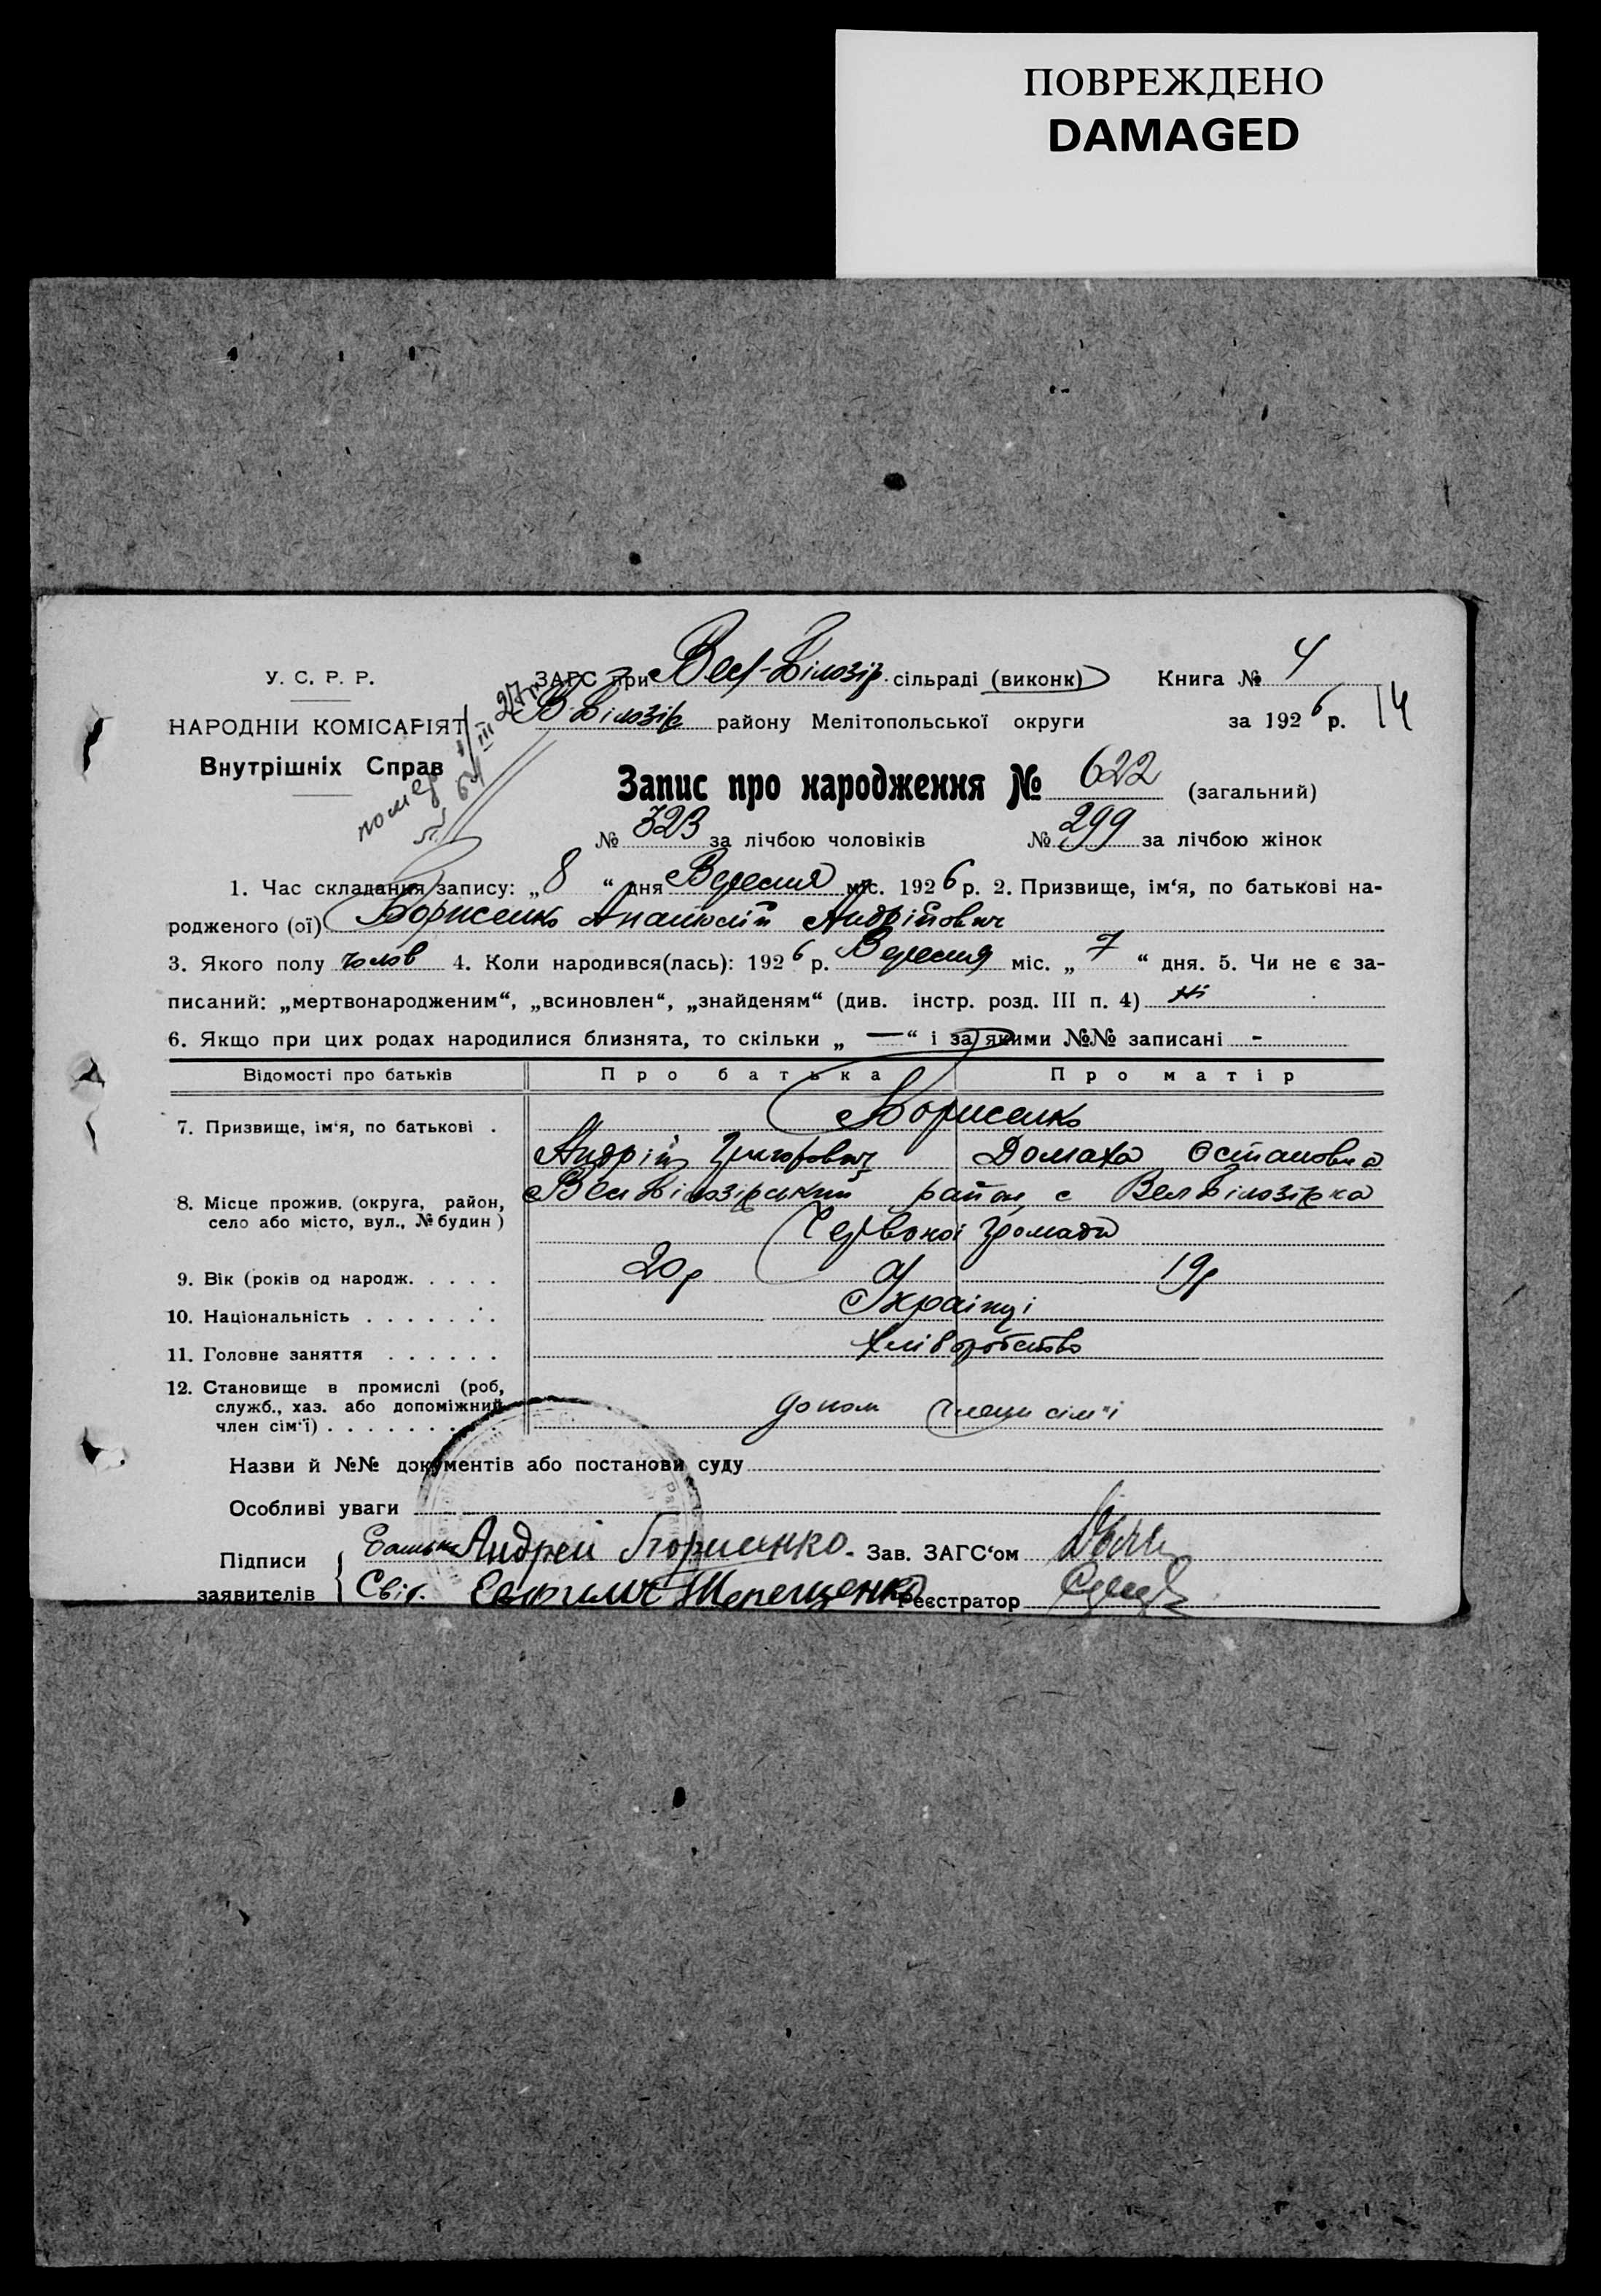 ПОВРЕЖДЕНО
DAMAGED
У. С. Р. Р.
НАРОДНІЙ КОМІСАРІЯТ
Внутрішніх Справ
помер 1/III 27 р
№ 64
ЗАГС при Вел-Білозір. сільраді (виконк)
В-Білозір району Мелітопольської округи
Книга № 4
за 1926 р. 14
Запис про народження № 622 (загальний)
№ 323 за лічбою чоловіків № 299 за лічбою жінок
1. Час складання запису: „8“ дня Вересня міс. 1926 р. 2. Призвище, ім‘я, по батькові на-
родженого (ої) Борисенко Анатолій Андрійович
3. Якого полу чолов 4. Коли народився(лась): 1926 р. Вересня міс. „7“ дня. 5. Чи не є за-
писаний: „мертвонародженим“, „всиновлен“, „знайденям“ (див. інстр. розд. III п. 4) ні
6. Якщо при цих родах народилися близнята, то скільки „—“ і за якими №№ записані -
Відомості про батьків Про батька Про матір
7. Призвище, ім‘я, по батькові . Борисенко
Андрій Григорович Домаха Остаповна
8. Місце прожив. (округа, район, село або місто, вул., № будин) Вел Білозірський район с Вел Білозірка
Червоної громади
9. Вік (років од народж. . . . . 20 р 19 р
10. Національність . . . . . . . Українці
11. Головне заняття . . . . . . Хліборобство
12. Становище в промислі (роб,
служб., хаз. або допоміжний
член сім‘ї) . . . . . . . допом члени сім"ї
Назви й №№ документів або постанови суду
Особливі уваги
Підписи заявителів
Батько Андрей Борисенко. Зав. ЗАГС‘ом
Свід. Терещенко Реєстратор